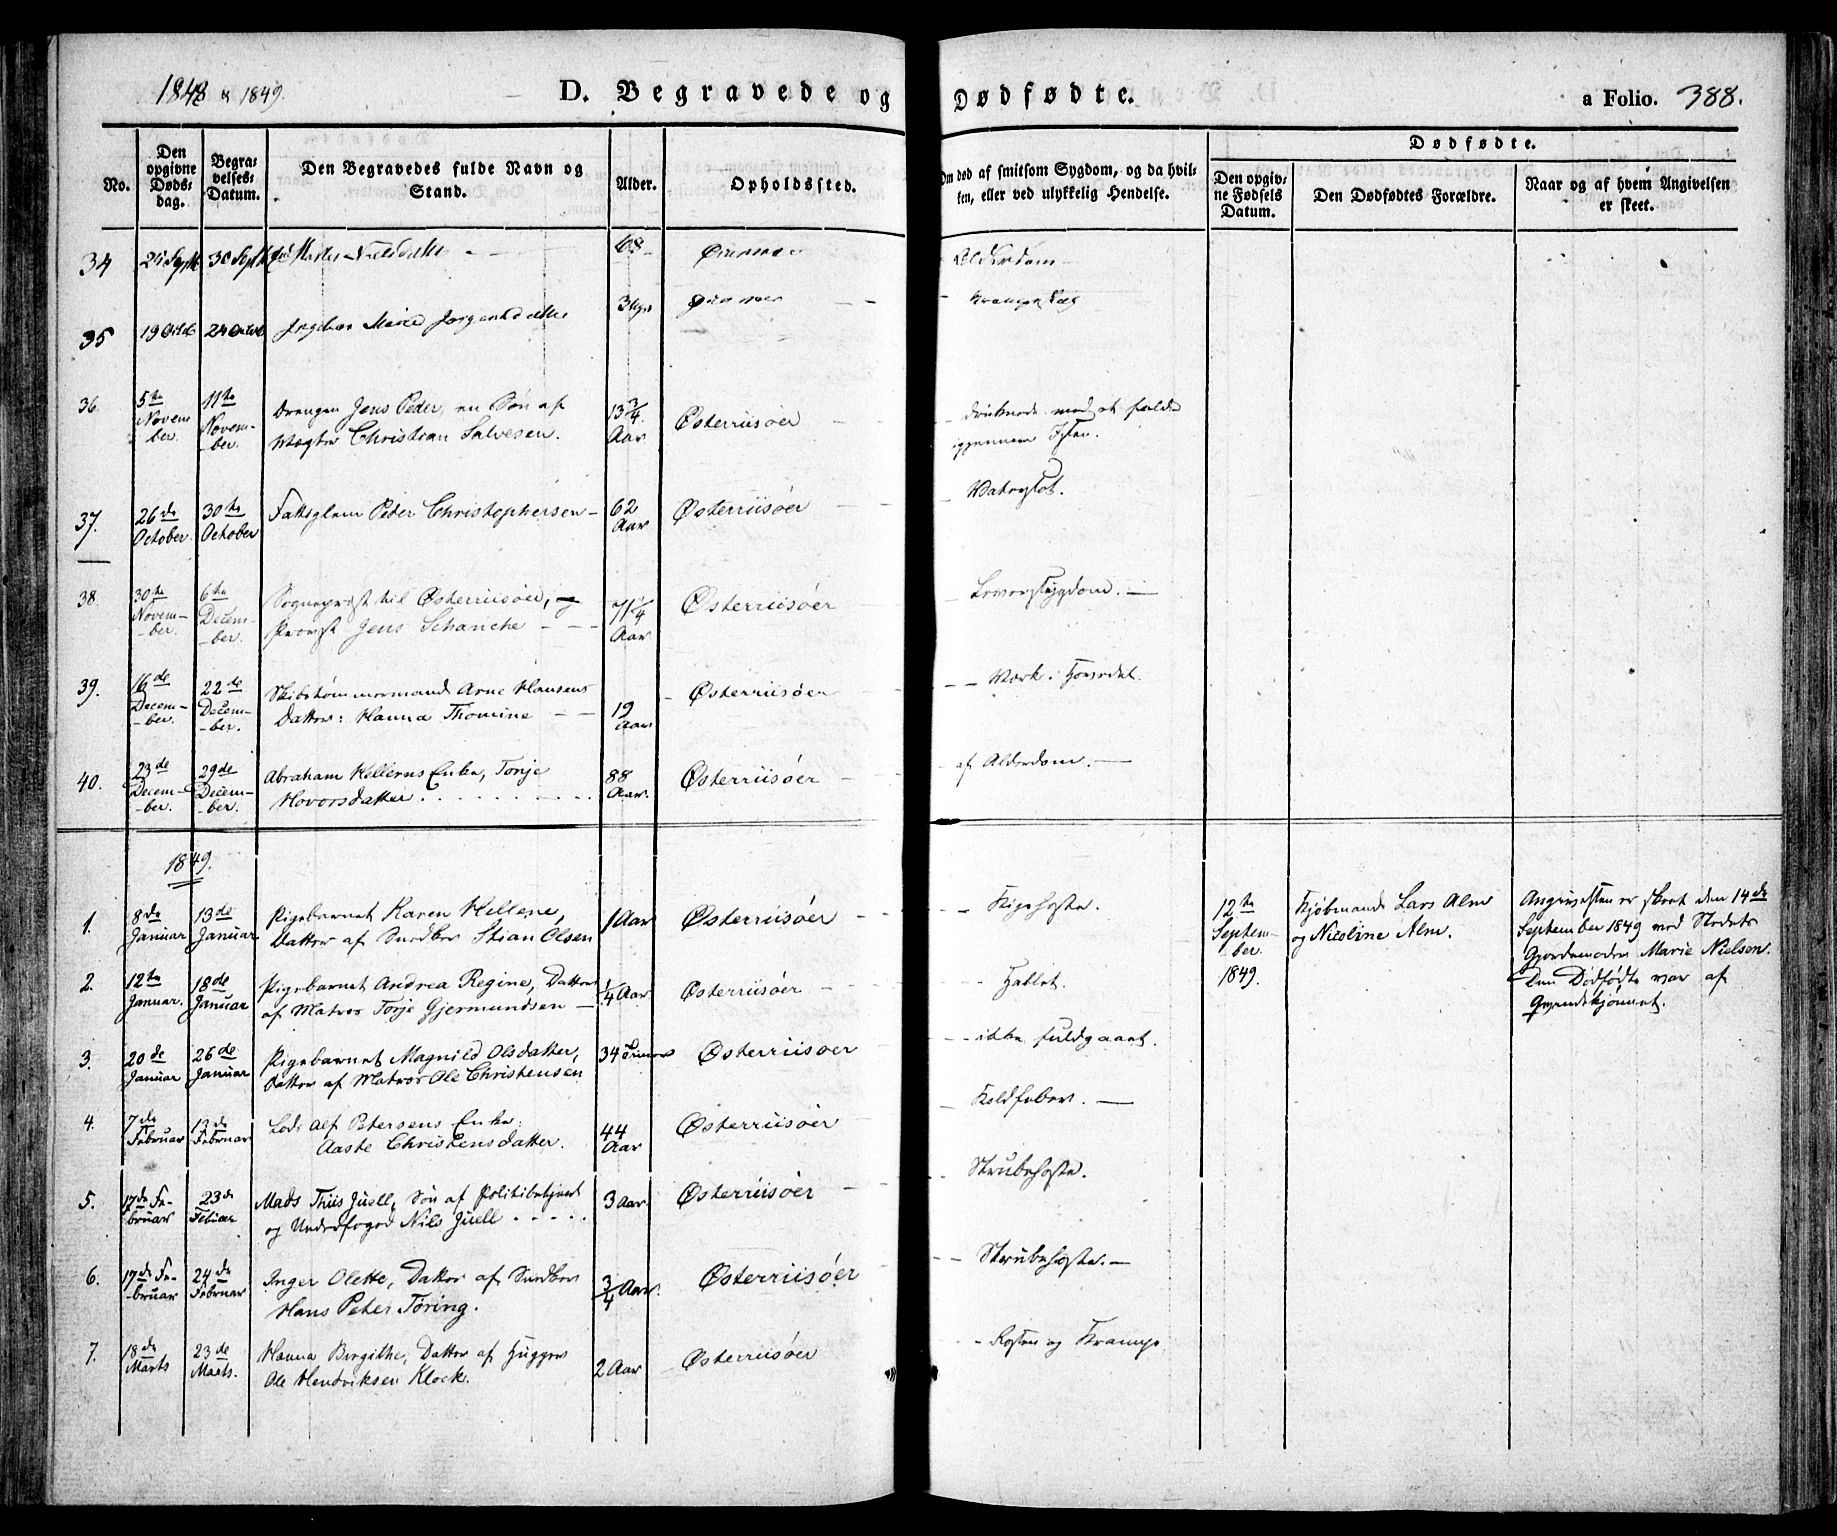 1848 & 1849.
D. Begravede og Dødfødte.
a Folio. 388.
No.
Den opgivne Døds-dag.
Begra-velses-Datum.
Den Begravedes fulde Navn og Stand.
Alder.
Opholdssted.
Om død af smitsom Sygdom, og da hvil-
ken, eller ved ulykkelig Hendelse.
Dødfødte.
Den opgiv-
ne Fødsels
Datum.
Den Dødfødtes Forældre.
Naar og af hvem Angivelsen
er skeet.
34 30 Sept 68 Alderdom
35 19 Octob 24 Octob Marie Jørgensdatter
36. 5te November. 11te November. Drengen Jens Peder, en Søn af
Vægter Christian Salvesen. 13 3/4 Aar Østerriisöer druknede ved at falde
igjennem Isen.
37. 26de October. 30te October Fattiglem Peder Christophersen 62 Aar Østerriisöer Vatersot.
38. 30te November. 6te December. Sognepræst til Østerriisöer, og
Provst Jens Schanche 71 1/4 Aar Østerriisöer Leversygdom.
39. 16de December. 22de December. Skibstømmermand Arne Hansens
Datter: Hanna Thomine 19 Aar Østerriisöer Værk i Hovedet.
40. 23de December. 29de December. Abraham Kellens Enke, Torje
Hovorsdatter 88 Aar. Østerriisöer af Alderdom.
1849.
1. 8de Januar 13de Januar Pigebarnet Karen Kellene,
Datter af Snedker Stian Olsen 1 Aar Østerriisöer Kighoste.
12te September. 1849. Kjøbmand Lars Alm
og Nicoline Alm. Angivelsen er skeet den 14de
September 1849 ved Stedets
Gjordemoder Marie Nielsen.
Den Dødfødte var af
Qvindekjønnet.
2. 12te Januar. 18de Januar Pigebarnet Andrea Regine, Datter
af Matros Torje Gjermundsen 1/4 Aar Østerriisöer
3. 20de Januar 26de Januar Pigebarnet Magnild Olsdatter,
Datter af Matros Ole Christensen 34 Timer Østerriisöer ikke fuldgaaet.
4. 7de Februar 13de Februar Lods Alf Petersens Enke:
Aaste Christensdatter. 44 Aar Østerriisöer Koldfeber.
5. 17de Februar 23de Februar Mads Thiis Juell, Søn af Politibetjent
og Underfoged Nils Juell 3 Aar Østerriisöer Strubehoste.
6. 17de Februar 24de Februar Inger Olette, Datter af Snedker
Hans Peter Töring. 3/4 Aar. Østerriisöer Strubehoste.
7. 18de Marts 23de Marts. Hanna Birgithe, Datter af Hugger
Ole Hendriksen Klock. 2 Aar Østerriisöer Hosten og Krampe